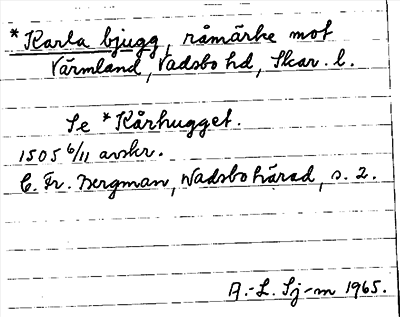 *Karla bjugg, råmärke mot
Värmland, Vadsbo hd, Skar. l.
Se *Kårhugget.
1505 6/11 avskr.
C. Fr. Bergman, Wadsbo härad, s. 2.
A.-L. Sj-m 1965.